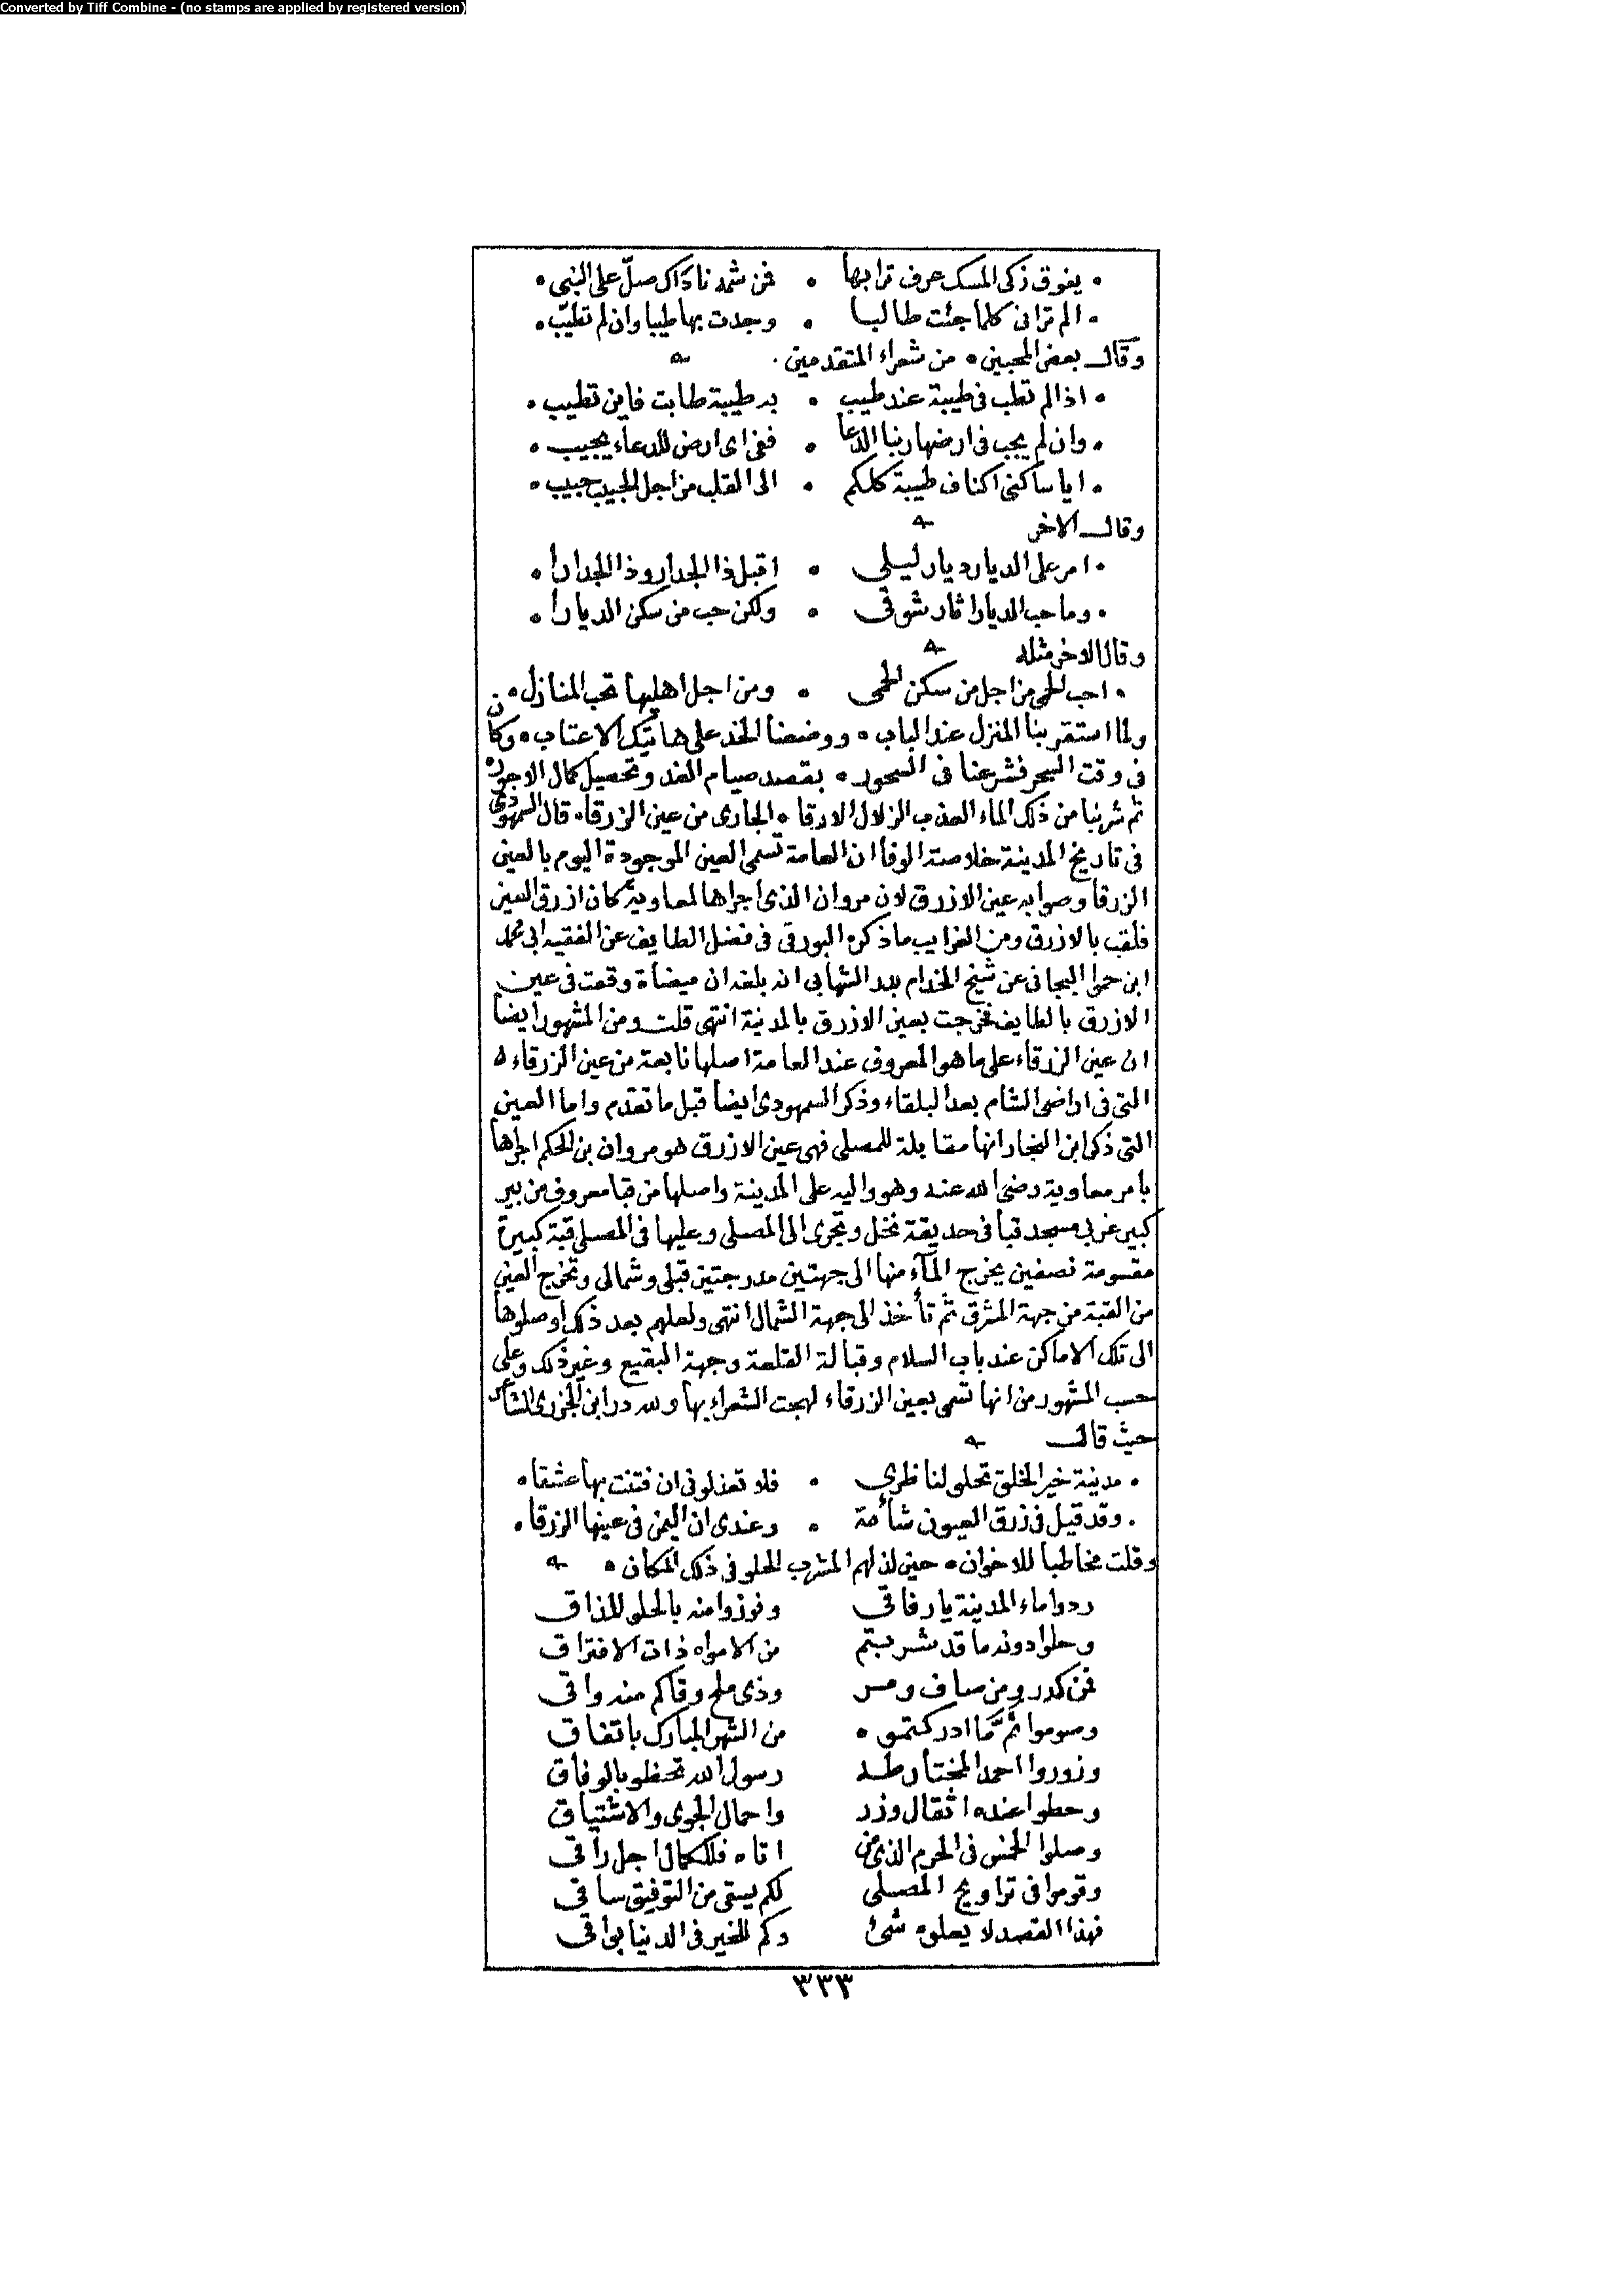 Converted by Tiff Combine - (no stamps are applied by registered version)
• يفوق ذكى المسك عرف ترابها • فمن شمه ناداك صلّ على النبى •
• الم ترانى كلما جئت طالبا • وجدت بها طيبا وان لم تطيّب •
وقال بعض المحبين • من شعراء المتقدمين •
• اذا لم تطب فى طيبة عند طيب • به طيبة طابت فاين تطيب •
• وان لم يجب فى ارضها ربنا الدعا • ففى اى ارض للدعاء يجيب •
• ايا ساكنى اكناف طيبة كلكم • الى القلب من اجل الحبيب حبيب •
وقال الاخر
• امر على الديار ديار ليلي • اقبل ذا الجدار وذا الجدارا •
• وما حب الديار اثار شوقى • ولكن حب من سكن الديارا •
وقال الاخر مثله
• احب الحمى من اجل من سكن الحمى • ومن اجل اهليها تحب المنازل •
ولما استقر بنا المنزل عند الباب • ووضعنا الخد على هاتيك الاعتاب • وكان
فى وقت السحر فشرعنا فى السحور • بقصد صيام الغد وتحصيل كمال الاجور •
ثم شربنا من ذلك الماء العذب الزلال الارقا • الجارى من عين الزرقا • قال السمهودى
فى تاريخ المدينة خلاصة الوفا ان العامة تسمى العين الموجودة اليوم بالعين
الزرقا وصوابه عين الازرق لان مروان الذى اجراها لمعاوية كان ازرق العين
فلقب بالازرق ومن الغرايب ما ذكره البورقى فى فضل الطايف عن الفقيه ابى محمد
ابن حمو البجائى عن شيخ الخدام بدر الشهابى انه بلغه ان ميضأة وقعت فى عين
الازرق بالطايف فخرجت بعين الازرق بالمدينة انتهى قلت ومن المشهور ايضا
ان عين الزرقاء على ما هو المعروف عند العامة اصلها نابعة من عين الزرقاء
التى فى اراضى الشام بعد البلقاء وذكر السمهودى ايضا قبل ما تقدم واما العين
التى ذكر ابن النجار انها مقابلة للمصلى فهى عين الازرق هو مروان بن الحكم اجراها
بامر معاوية رضى الله عنه وهو واليه على المدينة واصلها من قبا معروف من بير
كبير غربى مسجد قبا فى حديقة نخل وتجرى الى المصلى وعليها فى المصلى قبة كبيرة
مقسومة نصفين يخرج المآء منها الى جهتين مدرجتين قبلى وشمالى وتخرج العين
من القبة من جهة المشرق ثم تأخذ الى جهة الشمال انتهى ولعلهم بعد ذلك اوصلوها
الى تلك الاماكن عند باب السلام وقبالة القلعة وجهة البقيع وغير ذلك وعلى
حسب المشهور من انها تسمى بعين الزرقاء لهجت الشعراء بها ولله در ابن الجزرى
حيث قال
• مدينة خير الخلق تحلو لناظرى • فلا تعذلونى ان فتنت بها عشقا •
• وقد قيل فى زرق العيون شأمة • وعندى ان اليمن فى عينها الزرقا •
وقلت مخاطبا للاخوان • حين لذ لهم المشرب الحلو فى ذلك المكان •
ردوا ماء المدينة يا رفاقى وفوزوا منه بالحلو المذاق
وخلوا دونه ما قد شربتم من الامواه ذات الافتراق
فمن كدر ومن صاف ومر وذى ملح وقاكم منه واقى
وصوموا ثَمَّ ما ادركتمو • من الشهر المبارك باتفاق
وزوروا احمد المختار طه رسول الله تحظو بالوفاق
وحطوا عنده اثقال وزر واحمال الجوى والاشتياق
وصلوا الخمس فى الحرم الذى من اتاه فللكمال اجل راقى
وقوموا فى تراويح المصلى لكم يسقى من التوفيق ساقى
فهذا القصد لا يعلوه شئ وكم للخير فى الدنيا بواقى
٣٣٣